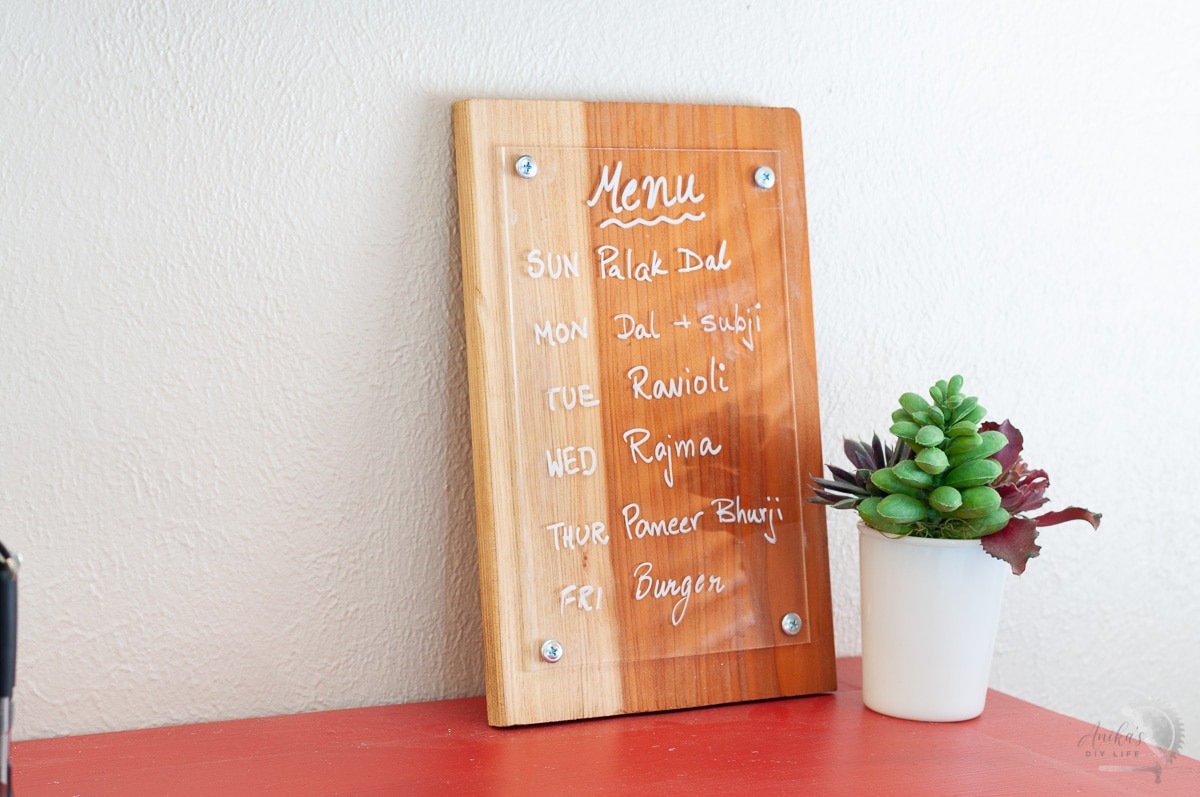 Menu
SUN Palak Dal
MON Dal + subji
TUE Ravioli
WED Rajma
THUR Paneer Bhurji
FRI Burger
Anika's
DIY LIFE